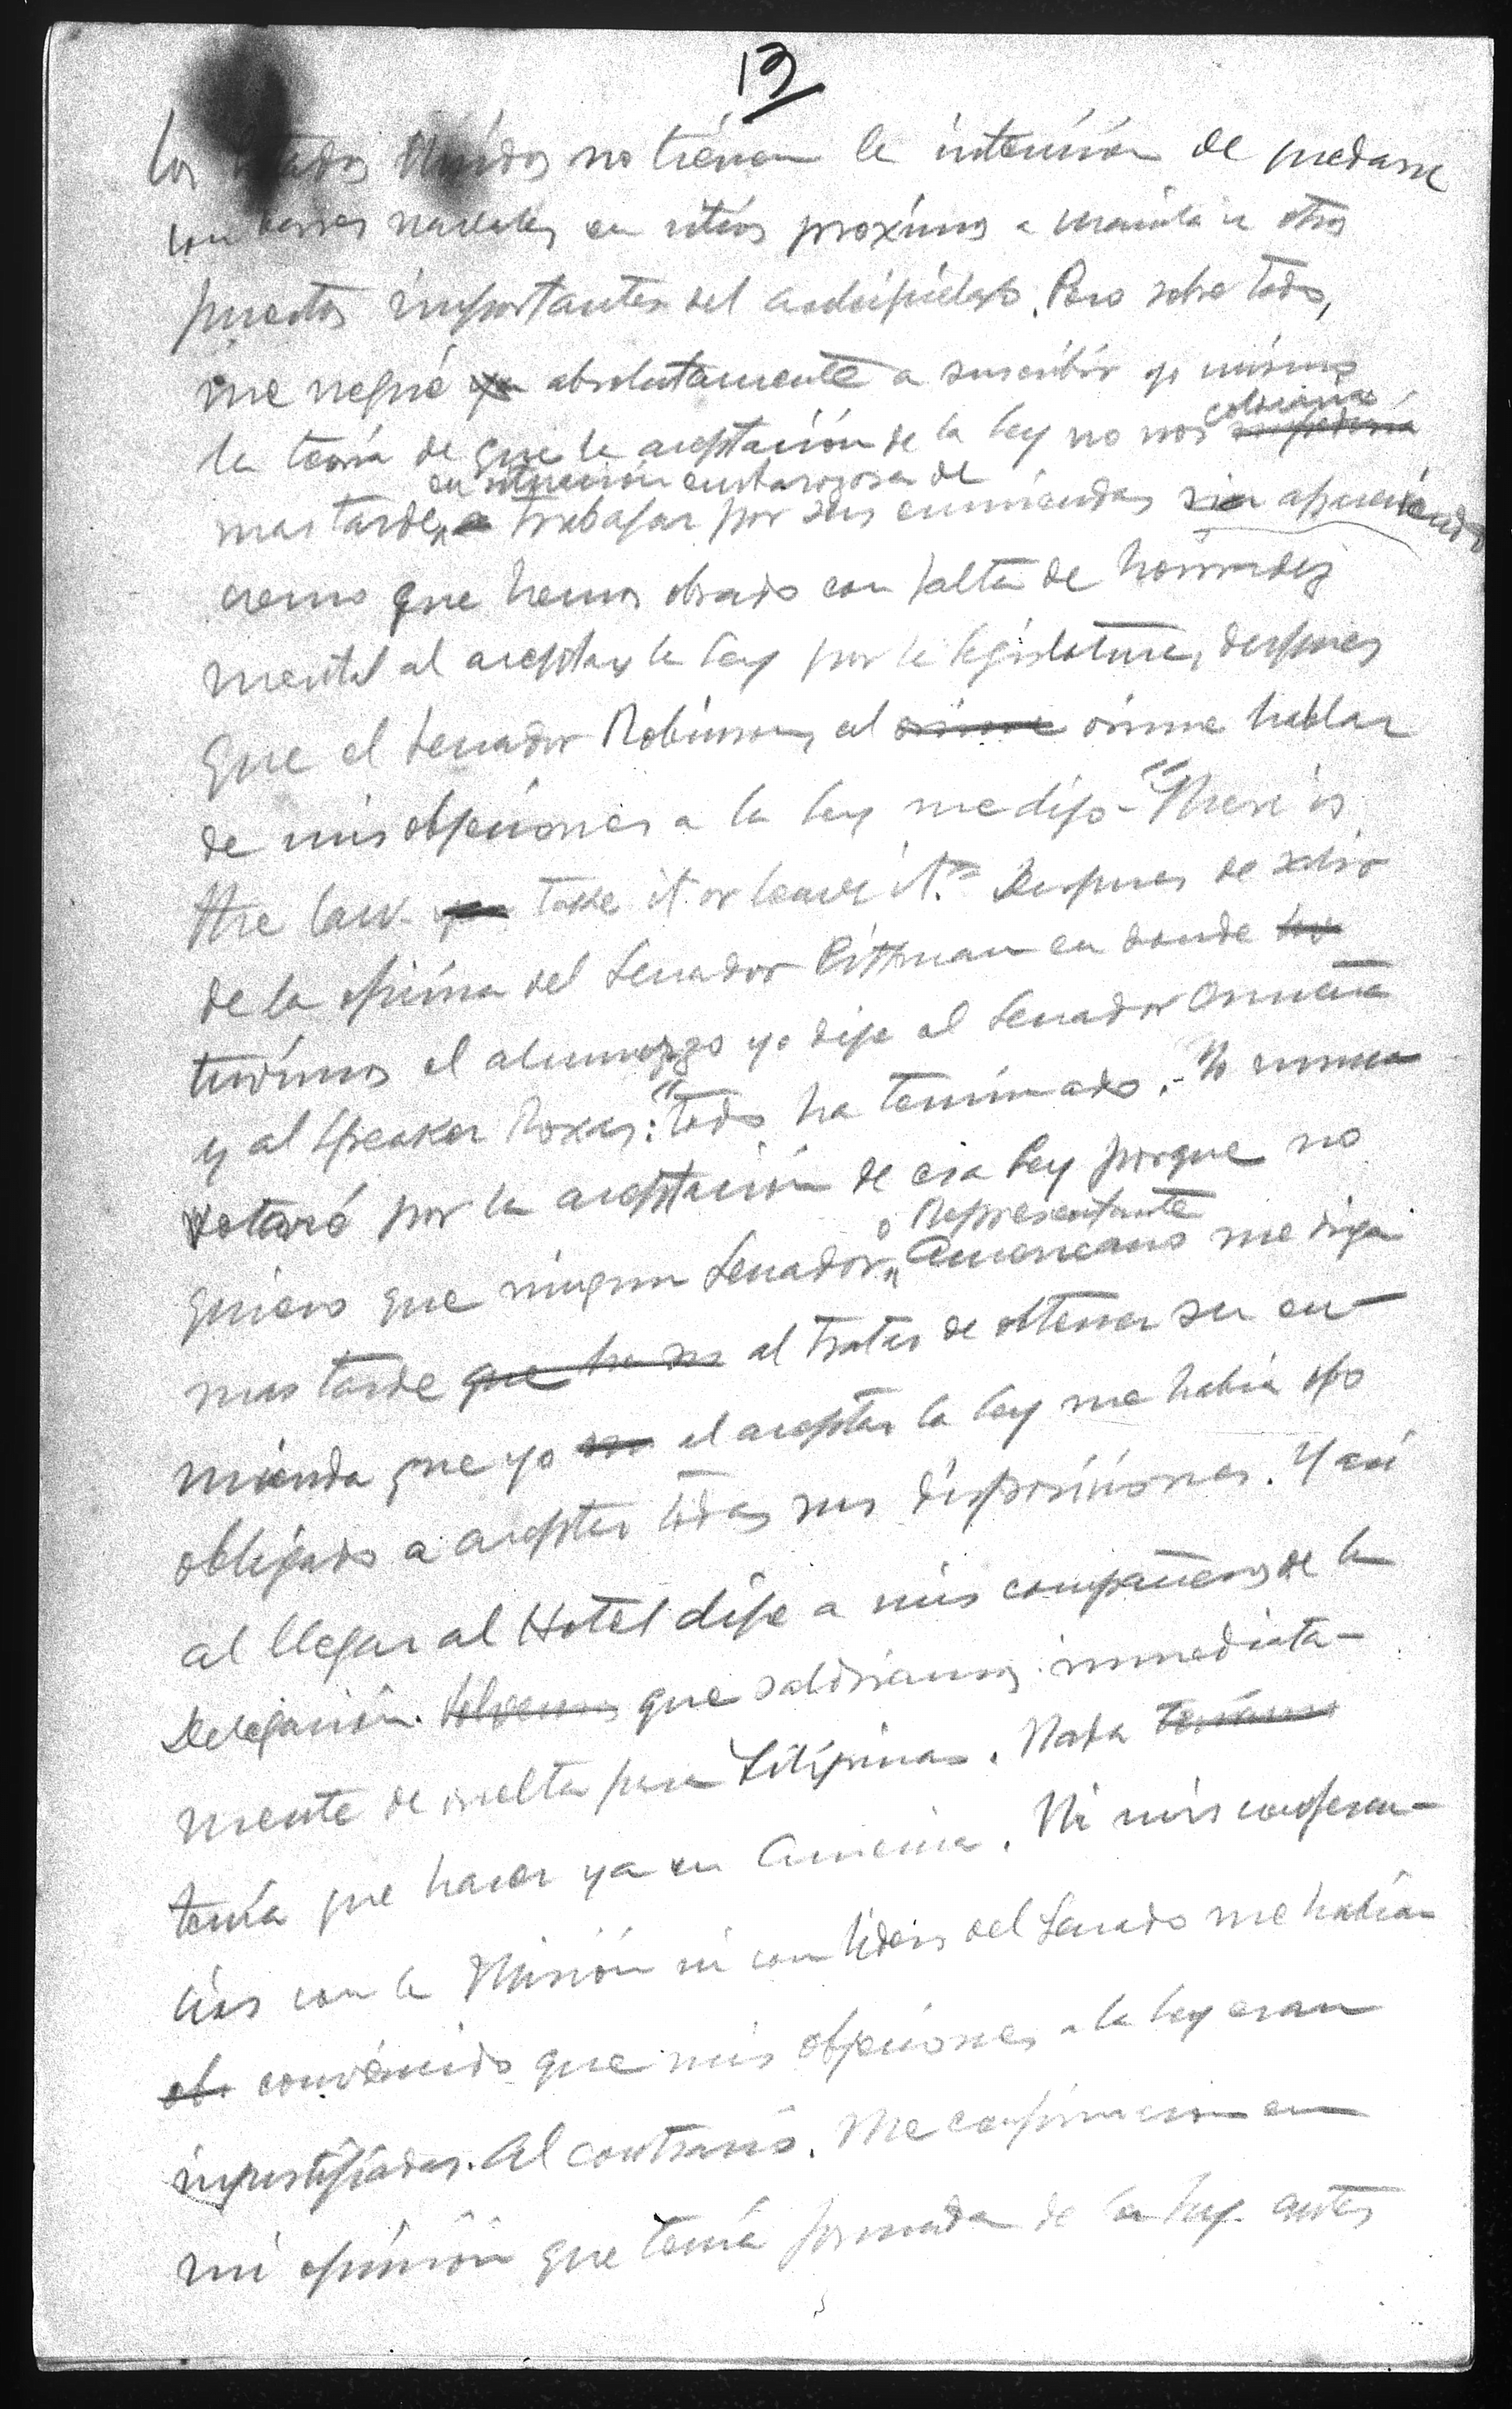 12
los Estados Unidos no tienen la intención de quedarse
con bases navales en sitios proximos a Manila u otros
puertos importantes del archipielago. Pero sobre todo,
me negué yo absolutamente a suscribir yo mismo
la teoria de que la aceptación de la ley no nos colocaria
en situacion embarazosa de
mas tarde a trabajar por sus enmiendas sin
cemo que hemos obrado con falta de honradez
mental al aceptar la ley por la legislatura, despues
que el Senador Robinson, al oirme hablar
de mis objeciones a la ley me dijo - "There is
the law. you take it or leave it." Despues de salir
de la oficina del Senador Pittman en donde
tuvimos el almuerzo yo dije al Senador Osmeña
y al Speaker Roxas: "todo ha terminado. Yo nunca
votaré por la aceptación de esa ley porque no
o Representante
quiero que ningun Senador Americano me diga
mas tarde que ha al tratar de obtener su en-
mienda que yo al aceptar la ley me habia
obligado a aceptar todas sus disposiciones. Y asi
al llegar al Hotel dije a mis compañeros de la
Delegación. que saldriamos inmediata-
mente de vuelta para Filipinas. Nada teniamos
tenía que hacer ya en America. Ni mis conferen-
cias con la Misión ni con lideres del Senado me habian
ob. convencido que mis objeciones a la ley eran
injustificadas. Al contrario. Me confirmaron en
mi opinión que tenía formada de la ley antes